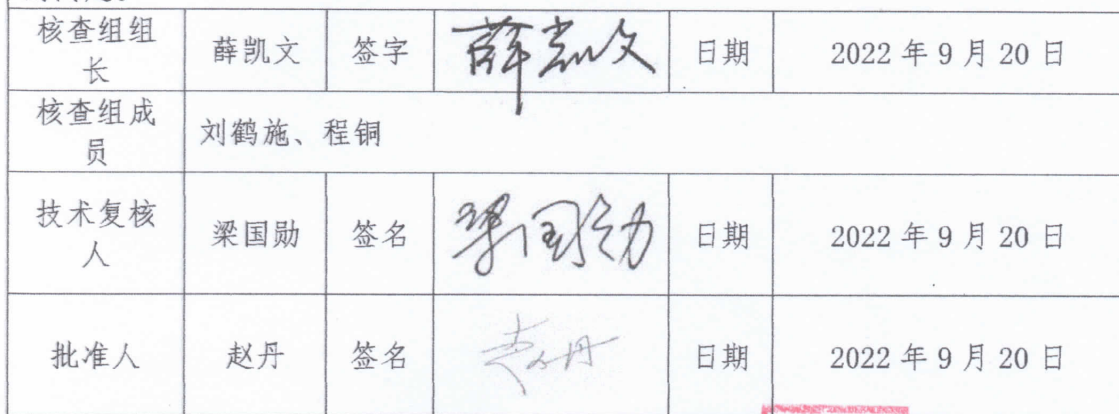 核查组组长 薛凯文 签字 薛凯文 日期 2022年9月20日
核查组成员 刘鹤施、程铜
技术复核人 梁国勋 签名 梁国勋 日期 2022年9月20日
批准人 赵丹 签名 赵丹 日期 2022年9月20日